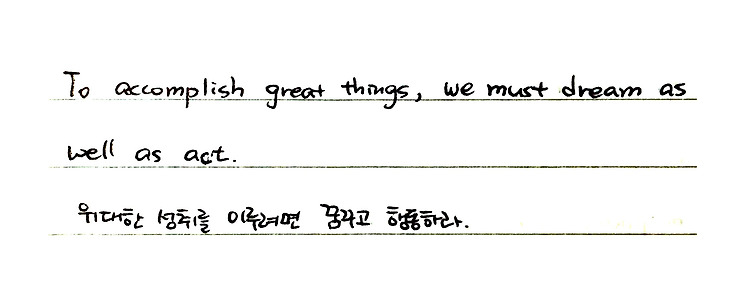 To accomplish great things, we must dream as
well as act.
위대한 성취를 이루려면 꿈꾸고 행동하라.